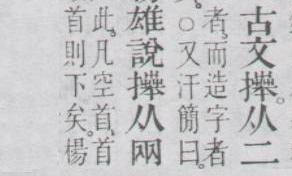 古文𢷎。从二
者。而造字者
○又汗簡曰。
雄說𢷎从兩
此。凡空首、首
首則下矣。楊